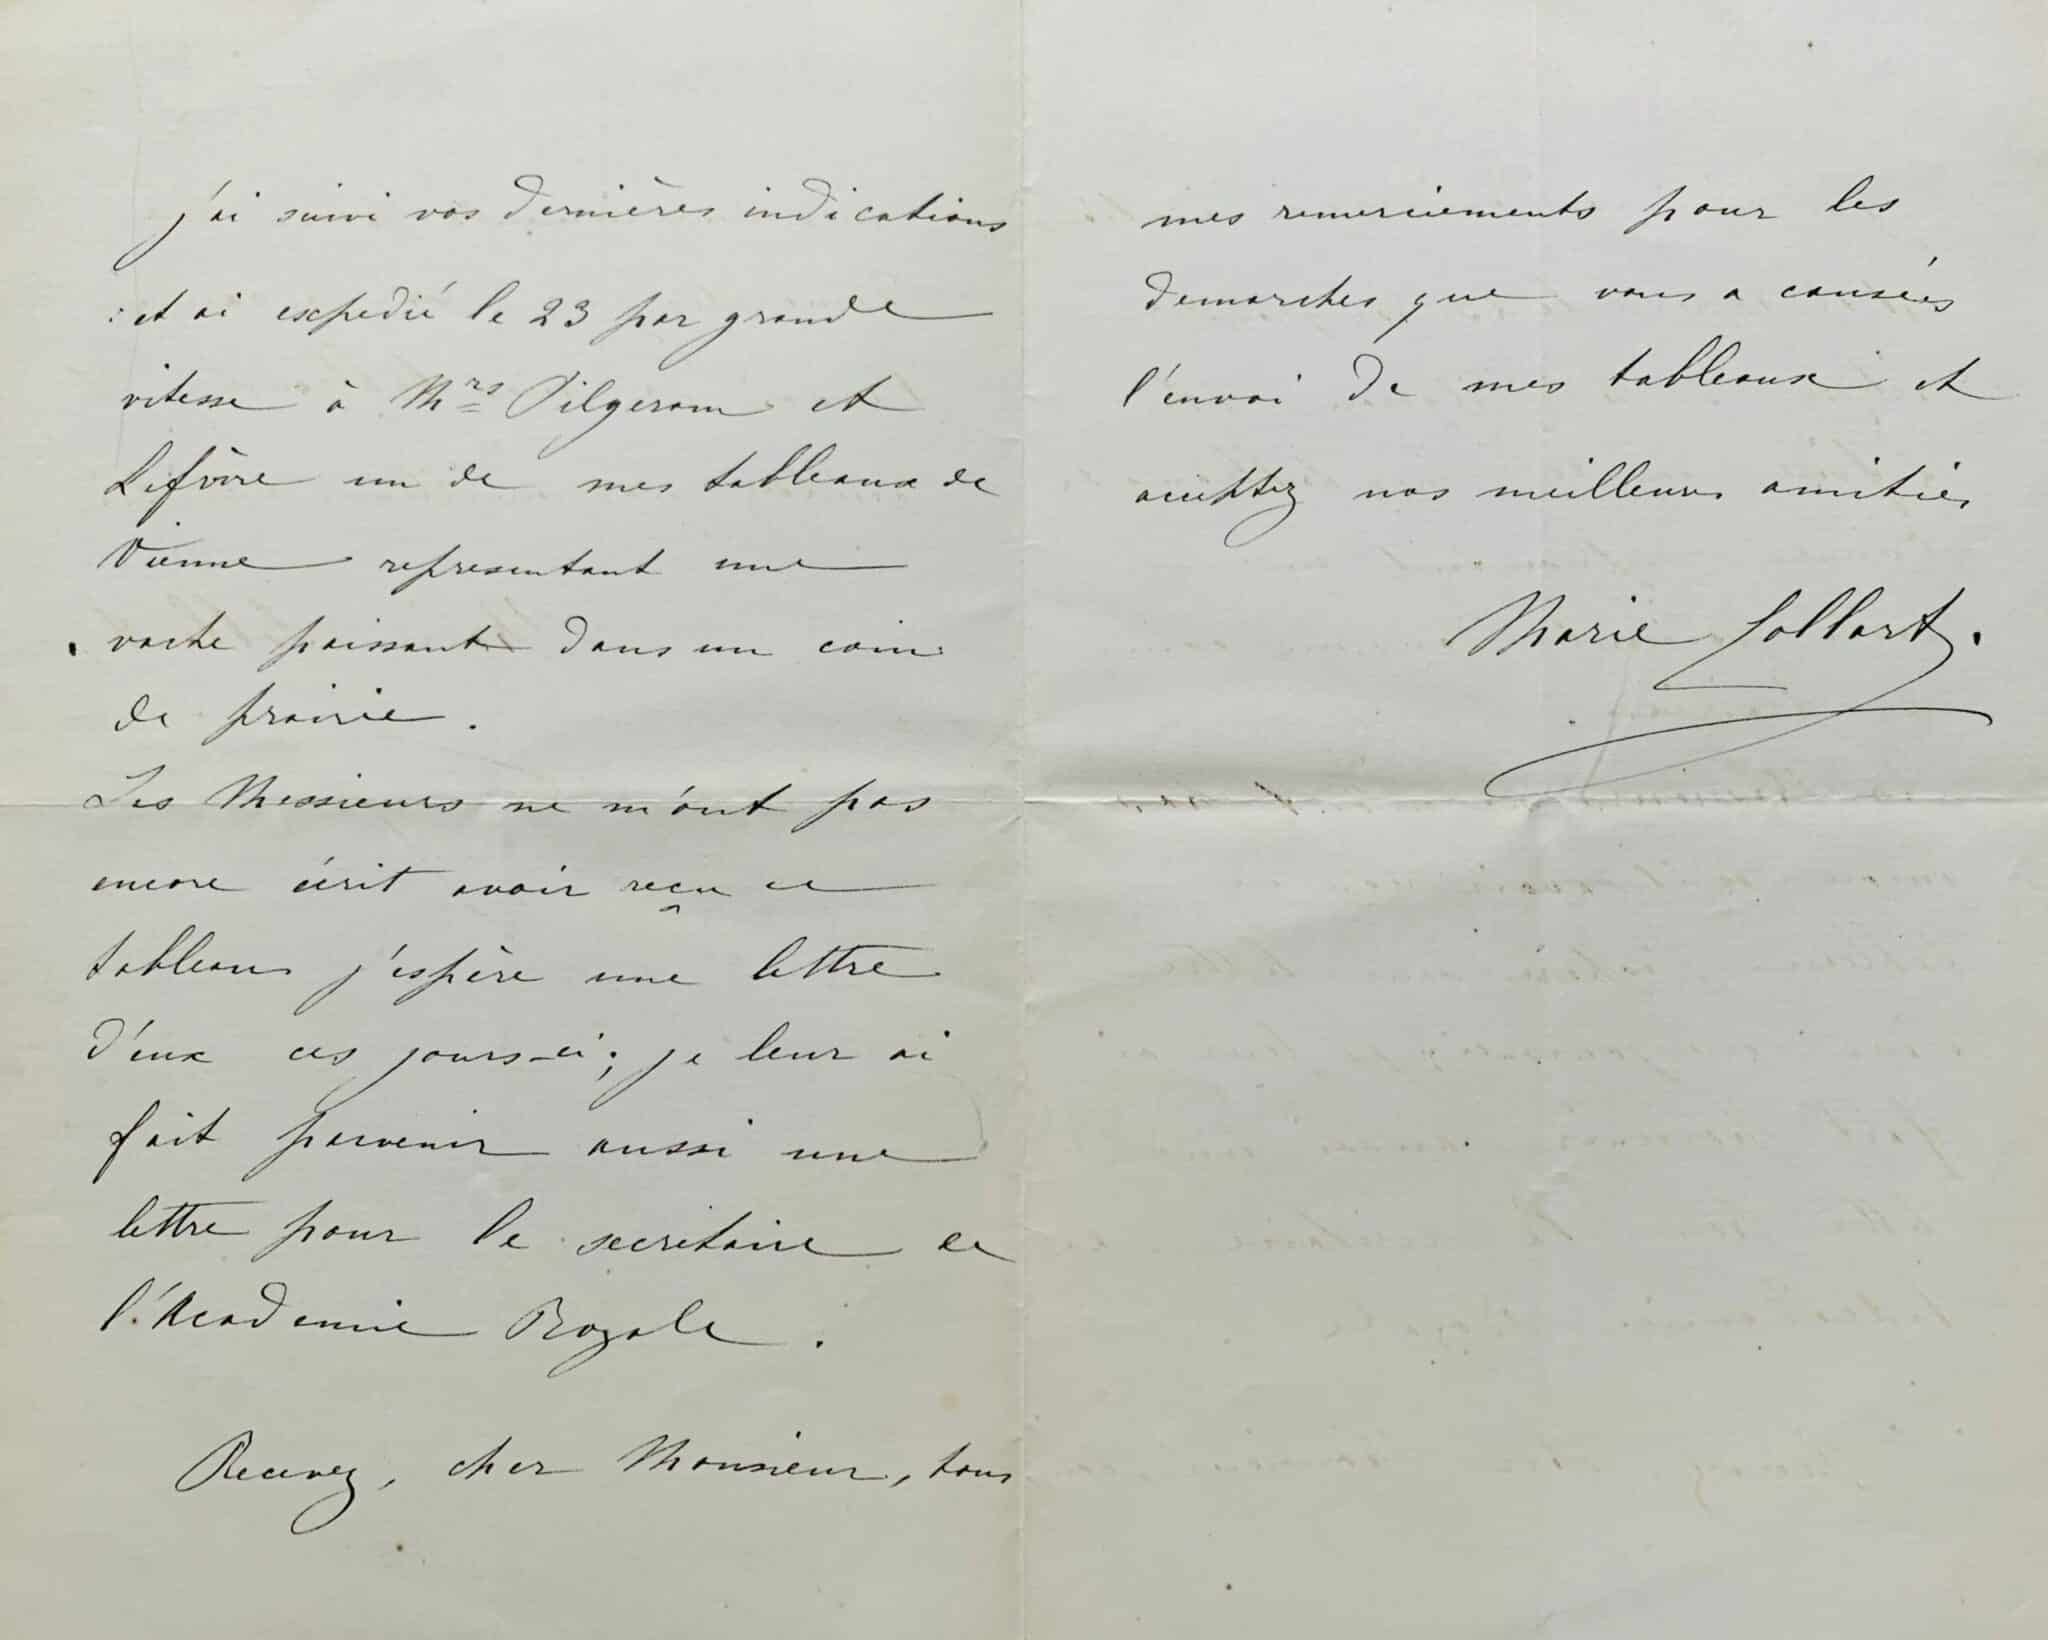 j'ai suivi vos dernières indications
et ai expedié le 23 par grande
vitesse à Mrs Pilgeram et
Lefèvre un de mes tableaux de
Vienne representant une
vache paissant dans un coin
de prairie.
Ces Messieurs ne m'ont pas
encore écrit avoir reçu ce
tableau j'espère une lettre
d'eux ces jours-ci; je leur ai
fait parvenir aussi une
lettre pour le secrétaire de
l'Academie Royale.
Recevez, cher Monsieur, tous
mes remerciements pour les
demarches que vous a causées
l'envoi de mes tableaux et
acceptez nos meilleures amitiés
Marie Collart.